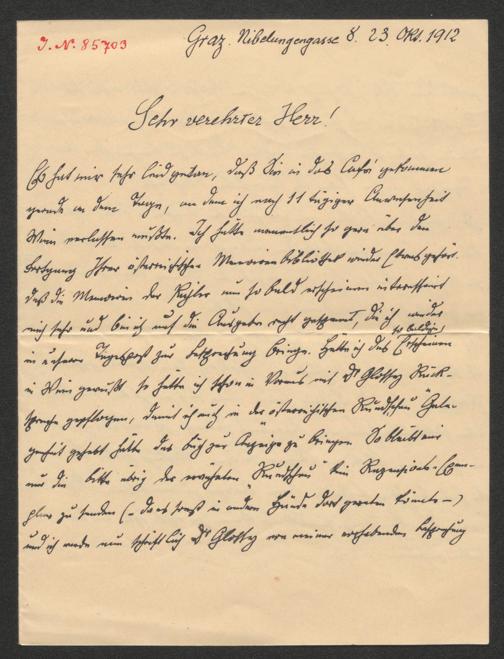 J. N. 85703
Graz. Nibelungengasse 8. 23. Okt. 1912
Sehr verehrter Herr!
Es hat mir sehr leid getan, daß Sie in das Café gekommen
gerade an dem Tage, an dem ich nach 11 tägiger Anwesenheit
Wien verlassen mußte. Ich hätte so gern über den
Fortgang Ihrer österreichischen Memoirenbibliothek wieder etwas gehört.
daß die Memoiren der Pichler nun so bald erscheinen interessirt
mich sehr und bin ich auf die Ausgabe recht gespannt, die ich wieder
in unserer Tagespost zur Besprechung bringe. Hätte ich das so baldige Erscheinen
in Wien gewußt so hätte ich schon in Voraus mit Dr Glossy Rück-
sprache gepflogen, damit ich auch in der "österreichischen Rundschau" Gele-
genheit gehabt hätte das Buch zur Anzeige zu bringen. So bleibt mir
nur die Bitte übrig der "Rundschau" kein Rezensions-Exem-
plar zu senden (– da es sonst in andere Hände dort geraten könnte –)
und ich werde nun schriftlich Dr Glossy von meiner vorhabenden Besprechung